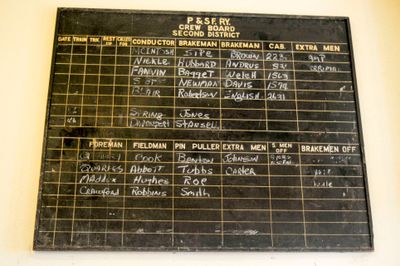 P & S.F. RY.
CREW BOARD
SECOND DISTRICT
DATE TRAIN TRK REST UP CALLED FOR CONDUCTOR BRAKEMAN BRAKEMAN CAB. EXTRA MEN
McINTOSH SIPE BROWN
NICKLE HUBBARD ANDRUS
FANVIN BAGGET WELCH 1563
NEWMAN DAVIS 1574
BLAIR Robertson ENGLISH 2631
SPRING JONES
STANSEL
FOREMAN FIELDMAN PIN PULLER EXTRA MEN 5 MENS OFF BRAKEMEN OFF
COOK Benton Johnson
QUARLES Abbott Tubbs CARTER
MADDOX Hughes Roe
Crawford Robbins Smith